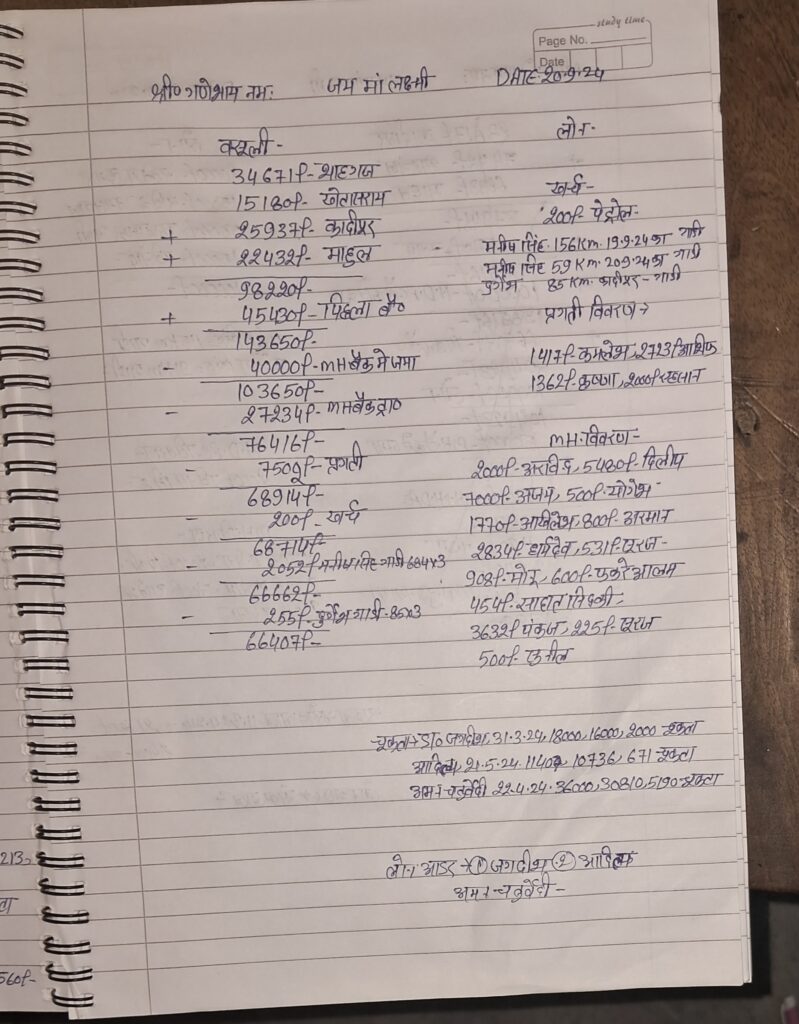 study time
Page No.
Date
श्री० गणेशाय नमः जय मां लक्ष्मी DATE 20.9.24
वसूली-
34671/- शाहगंज
15180/- खेतासराय
+ 25937/- कादीपुर
+ 22432/- माहुल
98220/-
+ 45430/- पिछला बै०
143650/-
- 40000/- MH बैंक मे जमा
103650/-
- 27234/- MH बैंक ट्रा०
76416/-
- 7502/- प्रगती
68914/-
- 200/- खर्च
68714/-
- 2052/- मनीष सिंह गाडी 684x3
66662/-
- 255/- दुर्गेश गाडी-85x3
66407/-
लोन-
खर्च-
200/- पेट्रोल-
मनीष सिंह 156 Km. 19.9.24 का गाडी
मनीष सिंह 59 Km. 20.9.24 का गाडी
दुर्गेश 85 Km. कादीपुर - गाडी
प्रगती विवरण→
1417/- कमलेश, 2723/- आशिक
1362/- कृष्णा, 2000/-
MH विवरण-
2000/- अरविंद, 5480/- दिलीप
7000/- अजय, 500/- योगेश
1770/- अखिलेश, 800/- अरमान
2834/- धर्मदेव, 531/- सूरज-
908/- मोनू, 600/- फकरे आलम
454/-
3632/- पंकज, 225/- सूरज
500/- सुनील
चुकता→ डा० जगदीश, 31.3.24, 18000, 16000, 2000 चुकता
आदित्य, 21.5.24. 11407, 10736, 671 चुकता
अमन चतुर्वेदी 22.4.24. 36000, 30810, 5190 चुकता
लोन आडर → ① जगदीश ② आदित्य
अमन चतुर्वेदी -
213
560/-